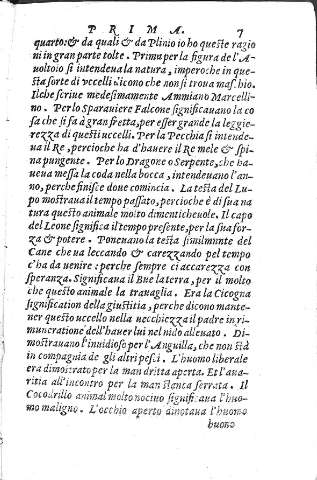 PRIMA. 7
quarto: & da quali & da Plinio io ho queste ragio
ni in gran parte tolte. Prima per la figura de l'A-
uoltoio si intendeua la natura, imperoche in que-
sta sorte di vccelli dicono che non si troua maschio.
Ilche scriue medesimamente Ammiano Marcelli
no. Per lo Sparauiere Falcone significauano la co
sa che si fa à gran fretta, per esser grande la leggie-
rezza di questi uccelli. Per la Pecchia si intende-
ua il Re, percioche ha d'hauere il Re mele & spi
na pungente. Per lo Dragone o Serpente, che ha-
ueua messa la coda nella bocca, intendeuano l'an-
no, perche finisce doue comincia. La testa del Lu-
po mostraua il tempo passato, percioche è di sua na
tura questo animale molto dimenticheuole. Il capo
del Leone significa il tempo presente, per la sua for-
za & potere. Poneuano la testa similmente del
Cane che ua leccando & carezzando pel tempo
c'ha da uenire: perche sempre ci accarezza con
speranza. Significaua il Bue la terra, per il molto
che questo animale la trauaglia. Era la Cicogna
signification della giustitia, perche dicono mante-
ner questo uccello nella uecchiezza il padre in ri-
muneratione dell'hauer lui nel nido alleuato. Di-
mostrauano l'inuidioso per l'Anguilla, che non stà
in compagnia de gli altri pesci. L'huomo liberale
era dimostrato per la man dritta aperta. Et l'aua-
ritia all'incontro per la man stanca serrata. Il
Cocodrilio animal molto nociuo significaua l'huo-
mo maligno. L'occhio aperto dinotaua l'huomo
buono